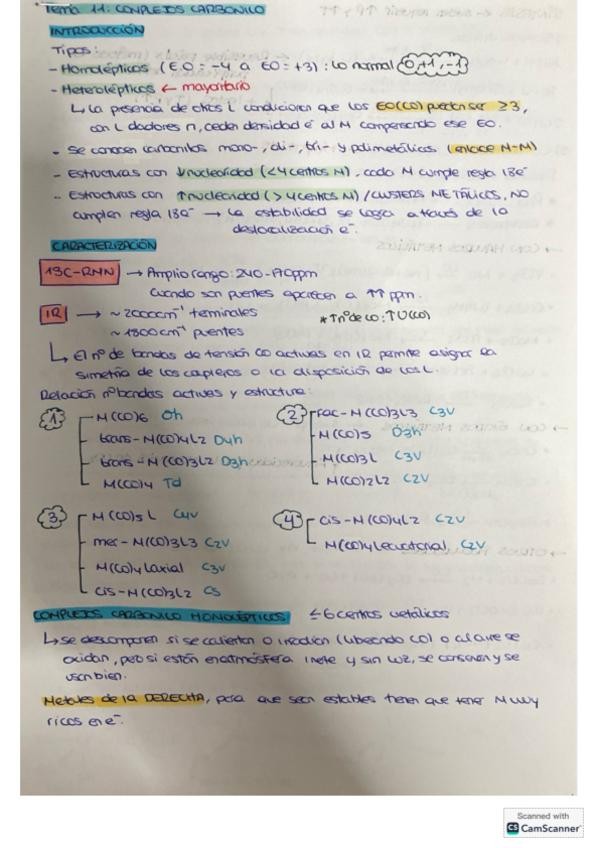 Tema 11: COMPLEJOS CARBONILO
INTRODUCCIÓN
Tipos:
- Homolépticos (EO = -4 a EO = +3): Lo normal 0, +1, -1
- Heterolépticos ← mayoritario
↳ La presencia de otros L condicionan que los EO(CO) puedan ser ≥3,
con L dadores π, ceden densidad e⁻ al M compensando ese EO.
- Se conocen carbonilos mono-, di-, tri- y polimetálicos (enlace M-M)
- Estructuras con ↓nuclearidad (<4 centros M), cada M cumple regla 18e⁻
- Estructuras con ↑nuclearidad (>4 centros M) / CLUSTERS METÁLICOS, NO
cumplen regla 18e⁻ → La estabilidad se logra a través de la
deslocalización e⁻.
CARACTERIZACIÓN
13C-RMN → Amplio rango: 240-170ppm
Cuando son puentes aparecen a ↑↑ ppm.
IR → ~2000cm⁻¹ terminales *↑nº de CO: ↑υ(CO)
~1800cm⁻¹ puentes
↳ El nº de bandas de tensión CO activas en IR permite asignar la
simetría de los complejos o la disposición de los L.
Relación nº bandas activas y estructura:
1
M(CO)6 Oh
trans-M(CO)4L2 D4h
trans-M(CO)3L2 D3h
M(CO)4 Td
2
fac-M(CO)3L3 C3V
M(CO)5 D3h
M(CO)3L C3V
M(CO)2L2 C2V
3
M(CO)5L C4V
mer-M(CO)3L3 C2V
M(CO)4Laxial C3V
cis-M(CO)3L2 Cs
4
cis-M(CO)4L2 C2V
M(CO)4Lecuatorial C2V
COMPLEJOS CARBONILO HOMOLÉPTICOS ≤6 centros metálicos
↳ se descomponen si se calientan o irradian (liberando CO) o al aire se
oxidan, pero si están en atmósfera inerte y sin luz, se conservan y se
usan bien.
Metales de la DERECHA, para que sean estables tienen que tener M muy
ricos en e⁻.
Scanned with
CS CamScanner